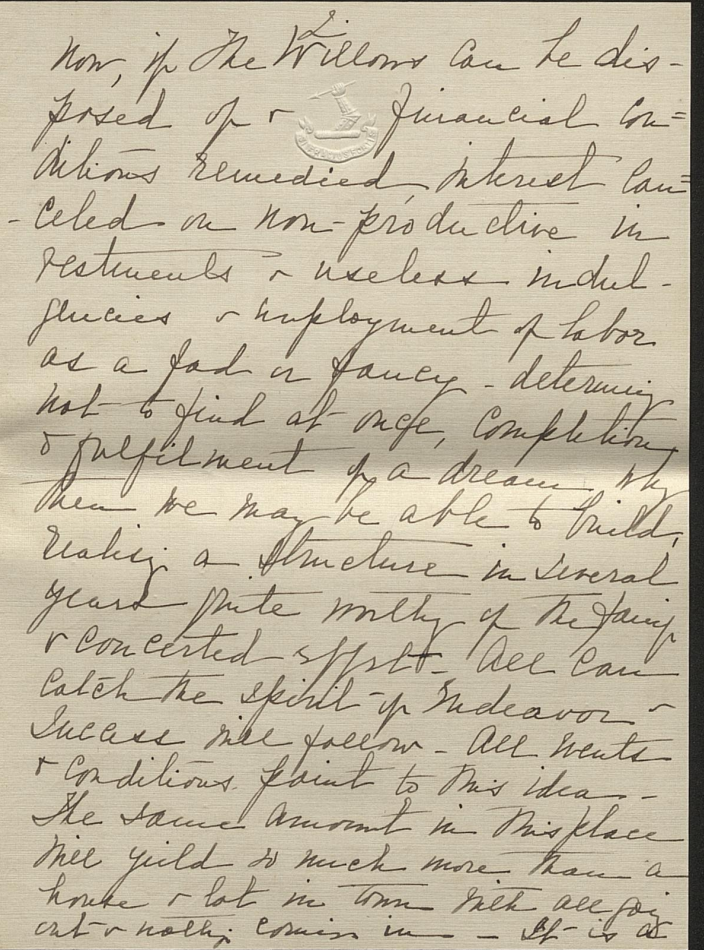 2
Now, if The Willows can be dis-
posed of & financial con=
ditions remedied, interest can=
-celed on non-productive in
vestments & useless indul-
gencies & employment of labor
as a fad or fancy - determing
not to find at once, completion
& fulfilment of a dream why
then we may be able to build,
realizg a structure in several
years quite worthy of the family
& concerted effort - All can
catch the spirit of Endeavor &
Success will follow - All events
& conditions point to this idea -
The same amount in this place
will yield so much more than a
house & lot in town with all goig
out & nothg comin in - It is as